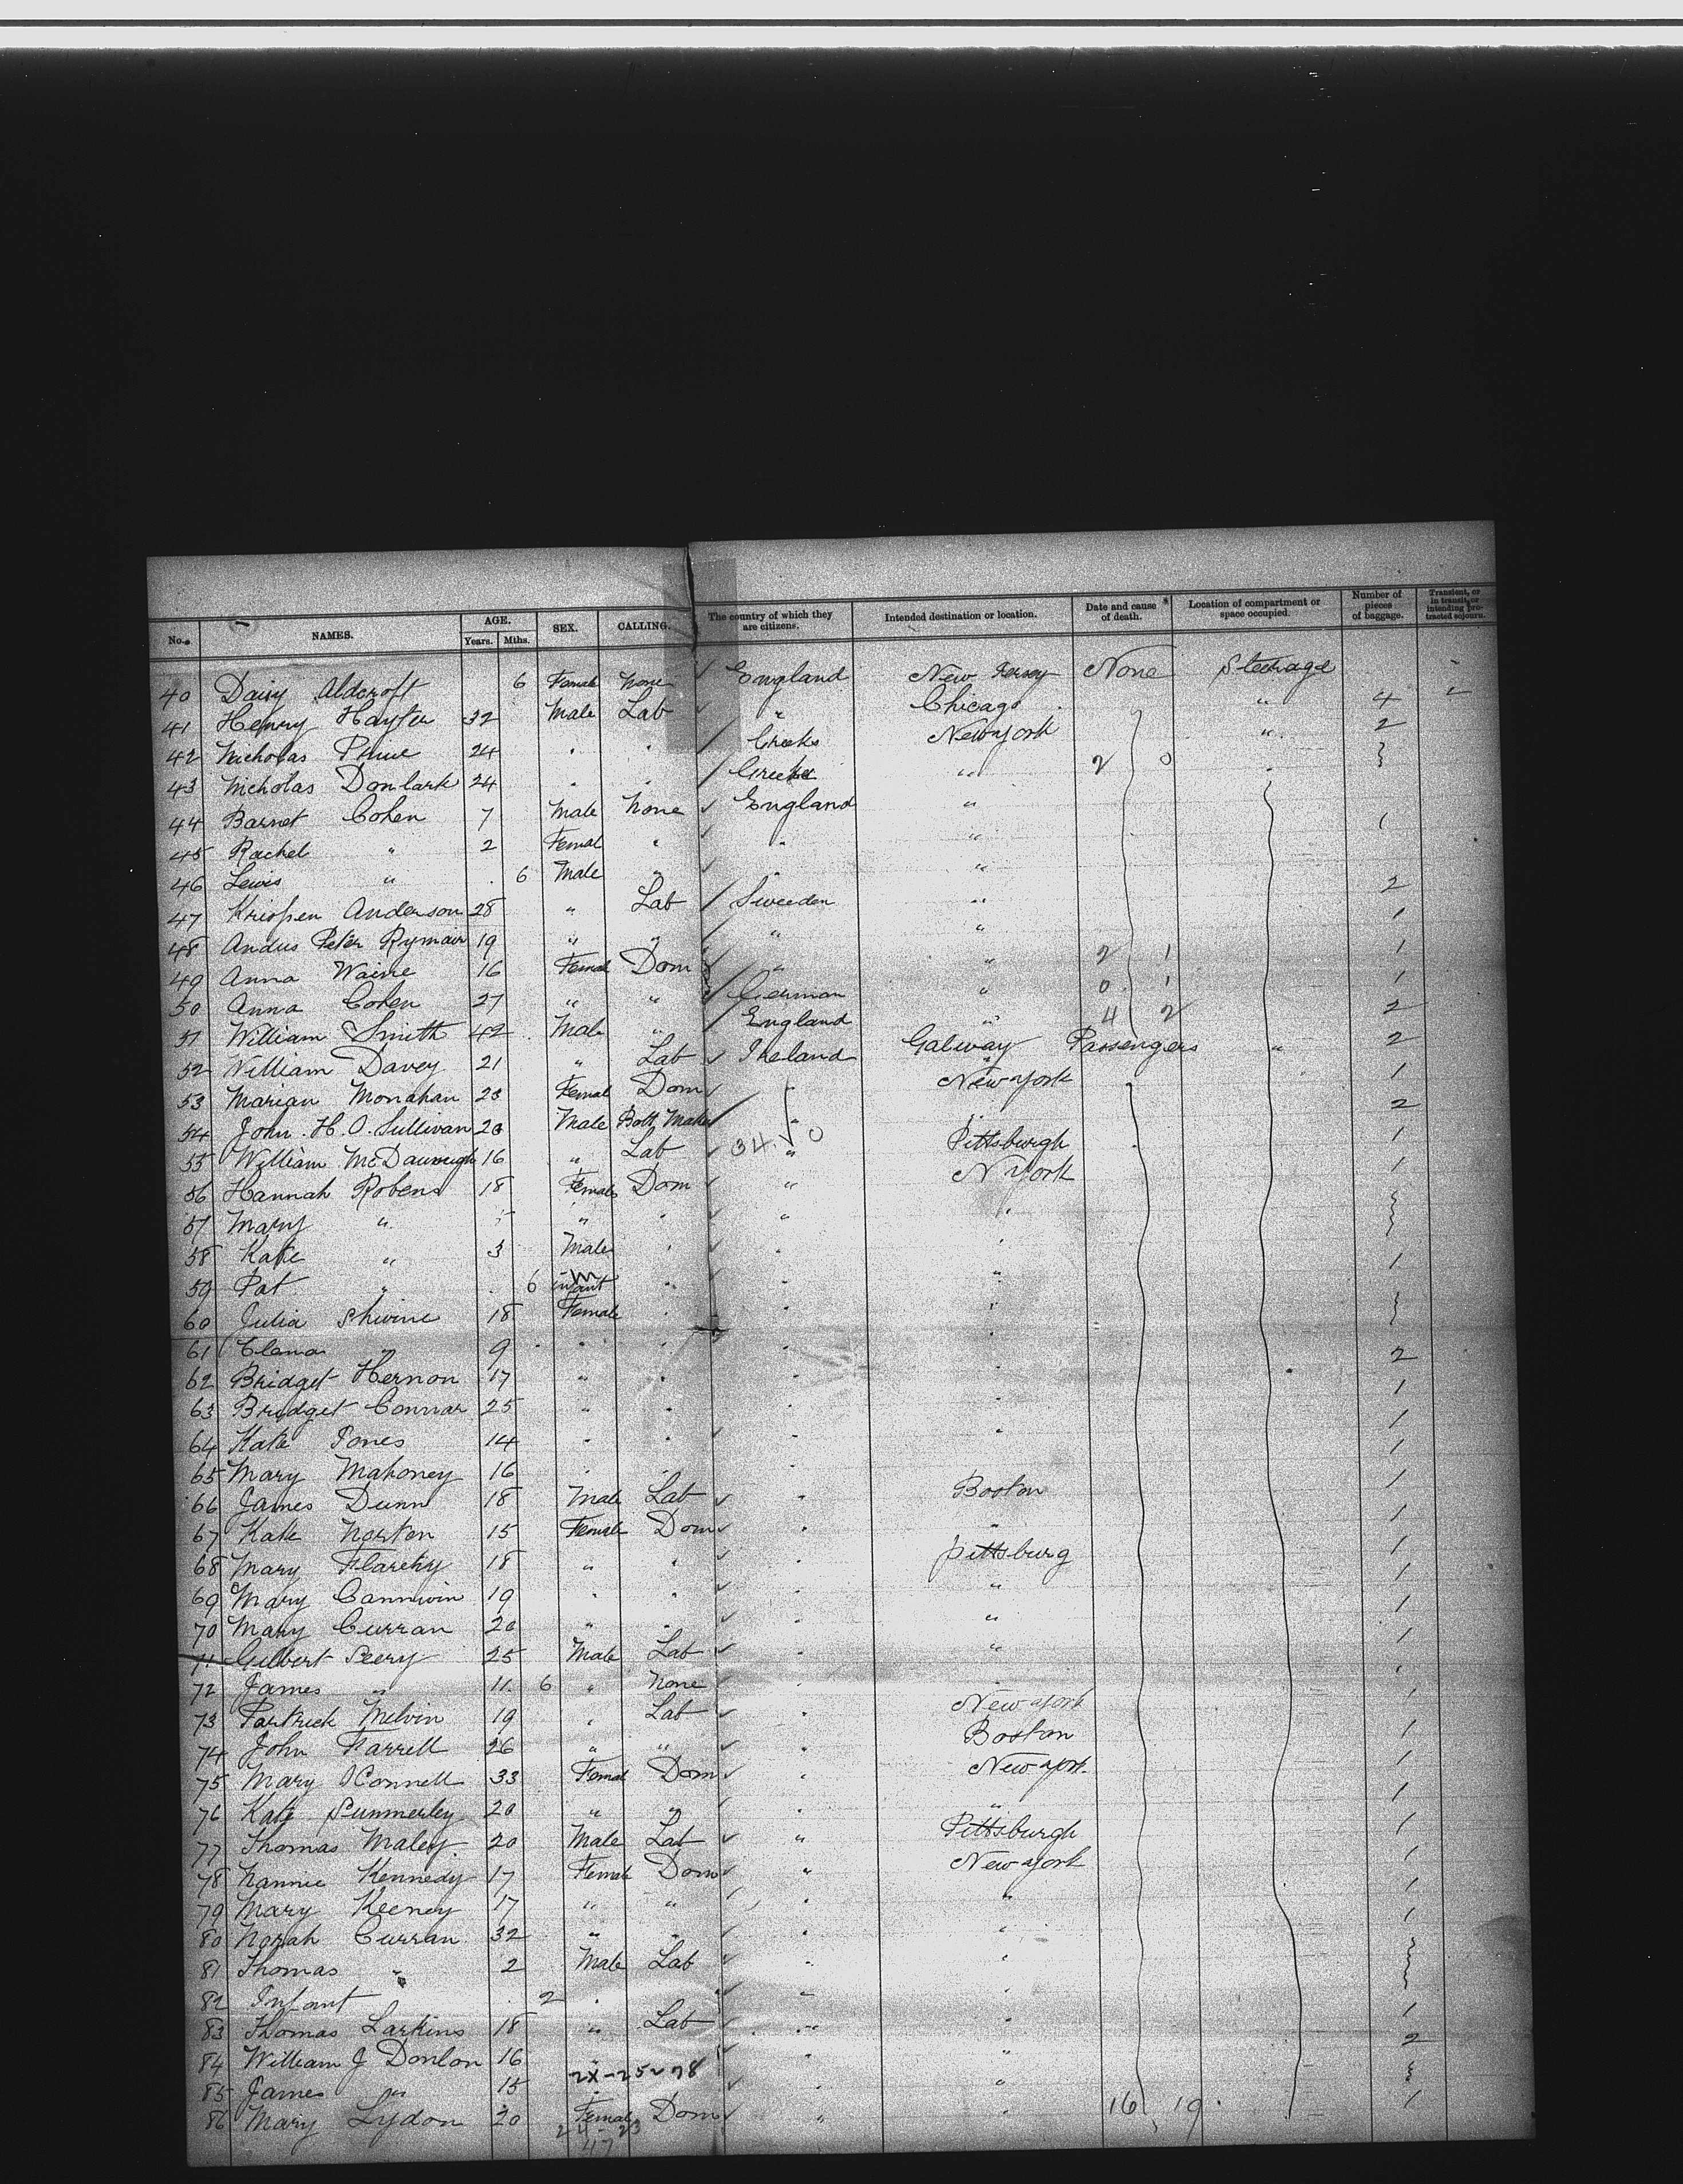 No. NAMES. AGE. Years. Mths. SEX. CALLING. The country of which they are citizens. Intended destination or location. Date and cause of death. Location of compartment or space occupied. Number of pieces of baggage. Transient, or in transit, or intending protracted sojourn.
40 Daisy Aldcroft 6 Female None England New Jersey None Steerage
41 Henry Hayter 32 Male Lab " Chicago " 4
42 Nicholas 24 " " Greeks New York " 2
43 Nicholas Donlark 24 " " Greeks " 2 0 "
44 Barnet Cohen 7 Male None England "
45 Rachel " 2 Femal " " " 1
46 Lewis " 6 Male " " "
47 Anderson 28 " Lab Sweeden " 2
48 Andus Peter Rymair 19 " " " " 1
49 Anna Waine 16 Femal Dom " " 2 1 1
50 Anna Cohen 27 " " German " 0 1 1
51 William Smith 42 Male " England " 4 2 2
52 William Davey 21 " Lab Ireland Galway Passengers " 2
53 Marian Monahan 23 Femal Dom New York 1
54 John H. O. Sullivan 20 Male Boot Make " " 2
55 William 16 " Lab 34 0 " Pittsburgh 1
56 Hannah Robens 18 Female Dom " N York 1
57 Mary " " " "
58 Kate " 3 Male " " "
59 Pat " 6 infant M " " " 1
60 Julia Shivine 18 Female " " "
61 " 9 " " " "
62 Bridget Hernon 17 " " " " 2
63 Bridget Connar 25 " " " " 1
64 Kate Jones 14 " " " " 1
65 Mary Mahoney 16 " " " 1
66 James Dunn 18 Male Lab " Boston 1
67 Kate Norton 15 Female Dom " " 1
68 Mary Flarehy 18 " " " Pittsburg 1
69 Mary Cannivin 19 " " " " 1
70 Mary Curran 20 " " " " 1
71 Gilbert Peery 25 Male Lab " " 1
72 James " 11 6 " None " "
73 Partrick Melvin 19 " Lab " New York 1
74 John Farrell 26 " " " Boston 1
75 Mary OConnell 33 Femal Dom " New York 1
76 Kate Summerley 20 " " " " 1
77 Thomas Maley 20 Male Lab " Pittsburgh 1
78 Nannie Kennedy 17 Female Dom " New York 1
79 Mary Keeney 17 " " " " 1
80 Norah Curran 32 " " " " 1
81 Thomas " 2 Male Lab " "
82 Infant 2 " " " "
83 Thomas Larkins 18 " Lab " " 1
84 William J Donlon 16 " " " 2
85 James " 15 " " "
86 Mary Lydon 20 Female Dom " " 16 19 1
24 - 23
47